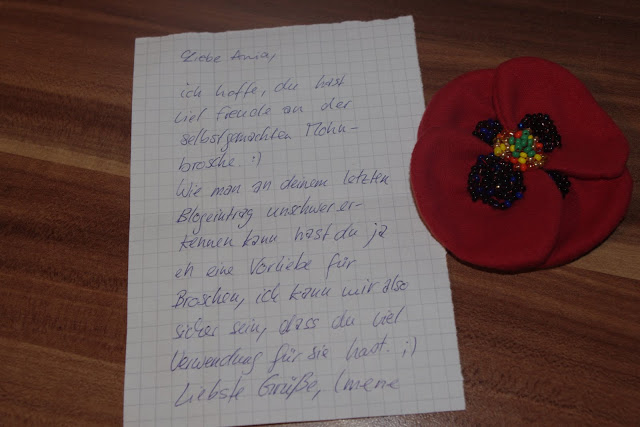 Liebe Xenia,
ich hoffe, du hast
viel Freude an der
selbstgemachten Mohn-
brosche. :)
Wie man an deinem letzten
Blogeintrag unschwer er-
kennen kann hast du ja
eh eine Vorliebe für
Broschen, ich kann mir also
sicher sein, dass du viel
Verwendung für sie hast. ;)
Liebste Grüße,